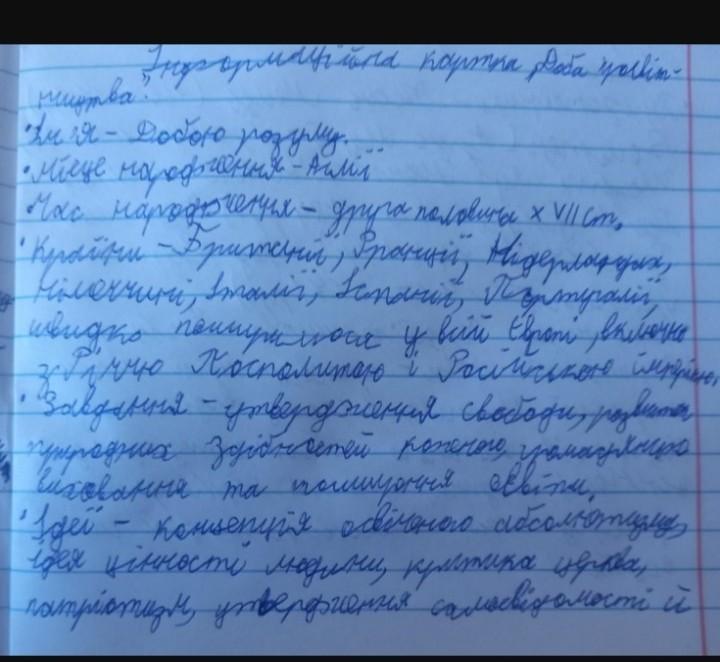 Інформаційна картка „Доба Просвіт-
ництва".
• Ім'я - Добою розуму.
• Місце народження - Англії
• Час народження - друга половина XVII ст.
• Країни - Британії, Франції, Нідерландах,
Німеччині, Італії, Іспанії, Португалії,
швидко поширилося у всій Європі, включно
з Річчю Посполитою і Російською імперією.
• Завдання - утвердження свободи, розвиток
природних здібностей кожного громадянина
виховання та поширення освіти.
• Ідеї - концепція освіченого абсолютизму,
ідея цінності людини, критика церкви,
патріотизм, утвердження самосвідомості й